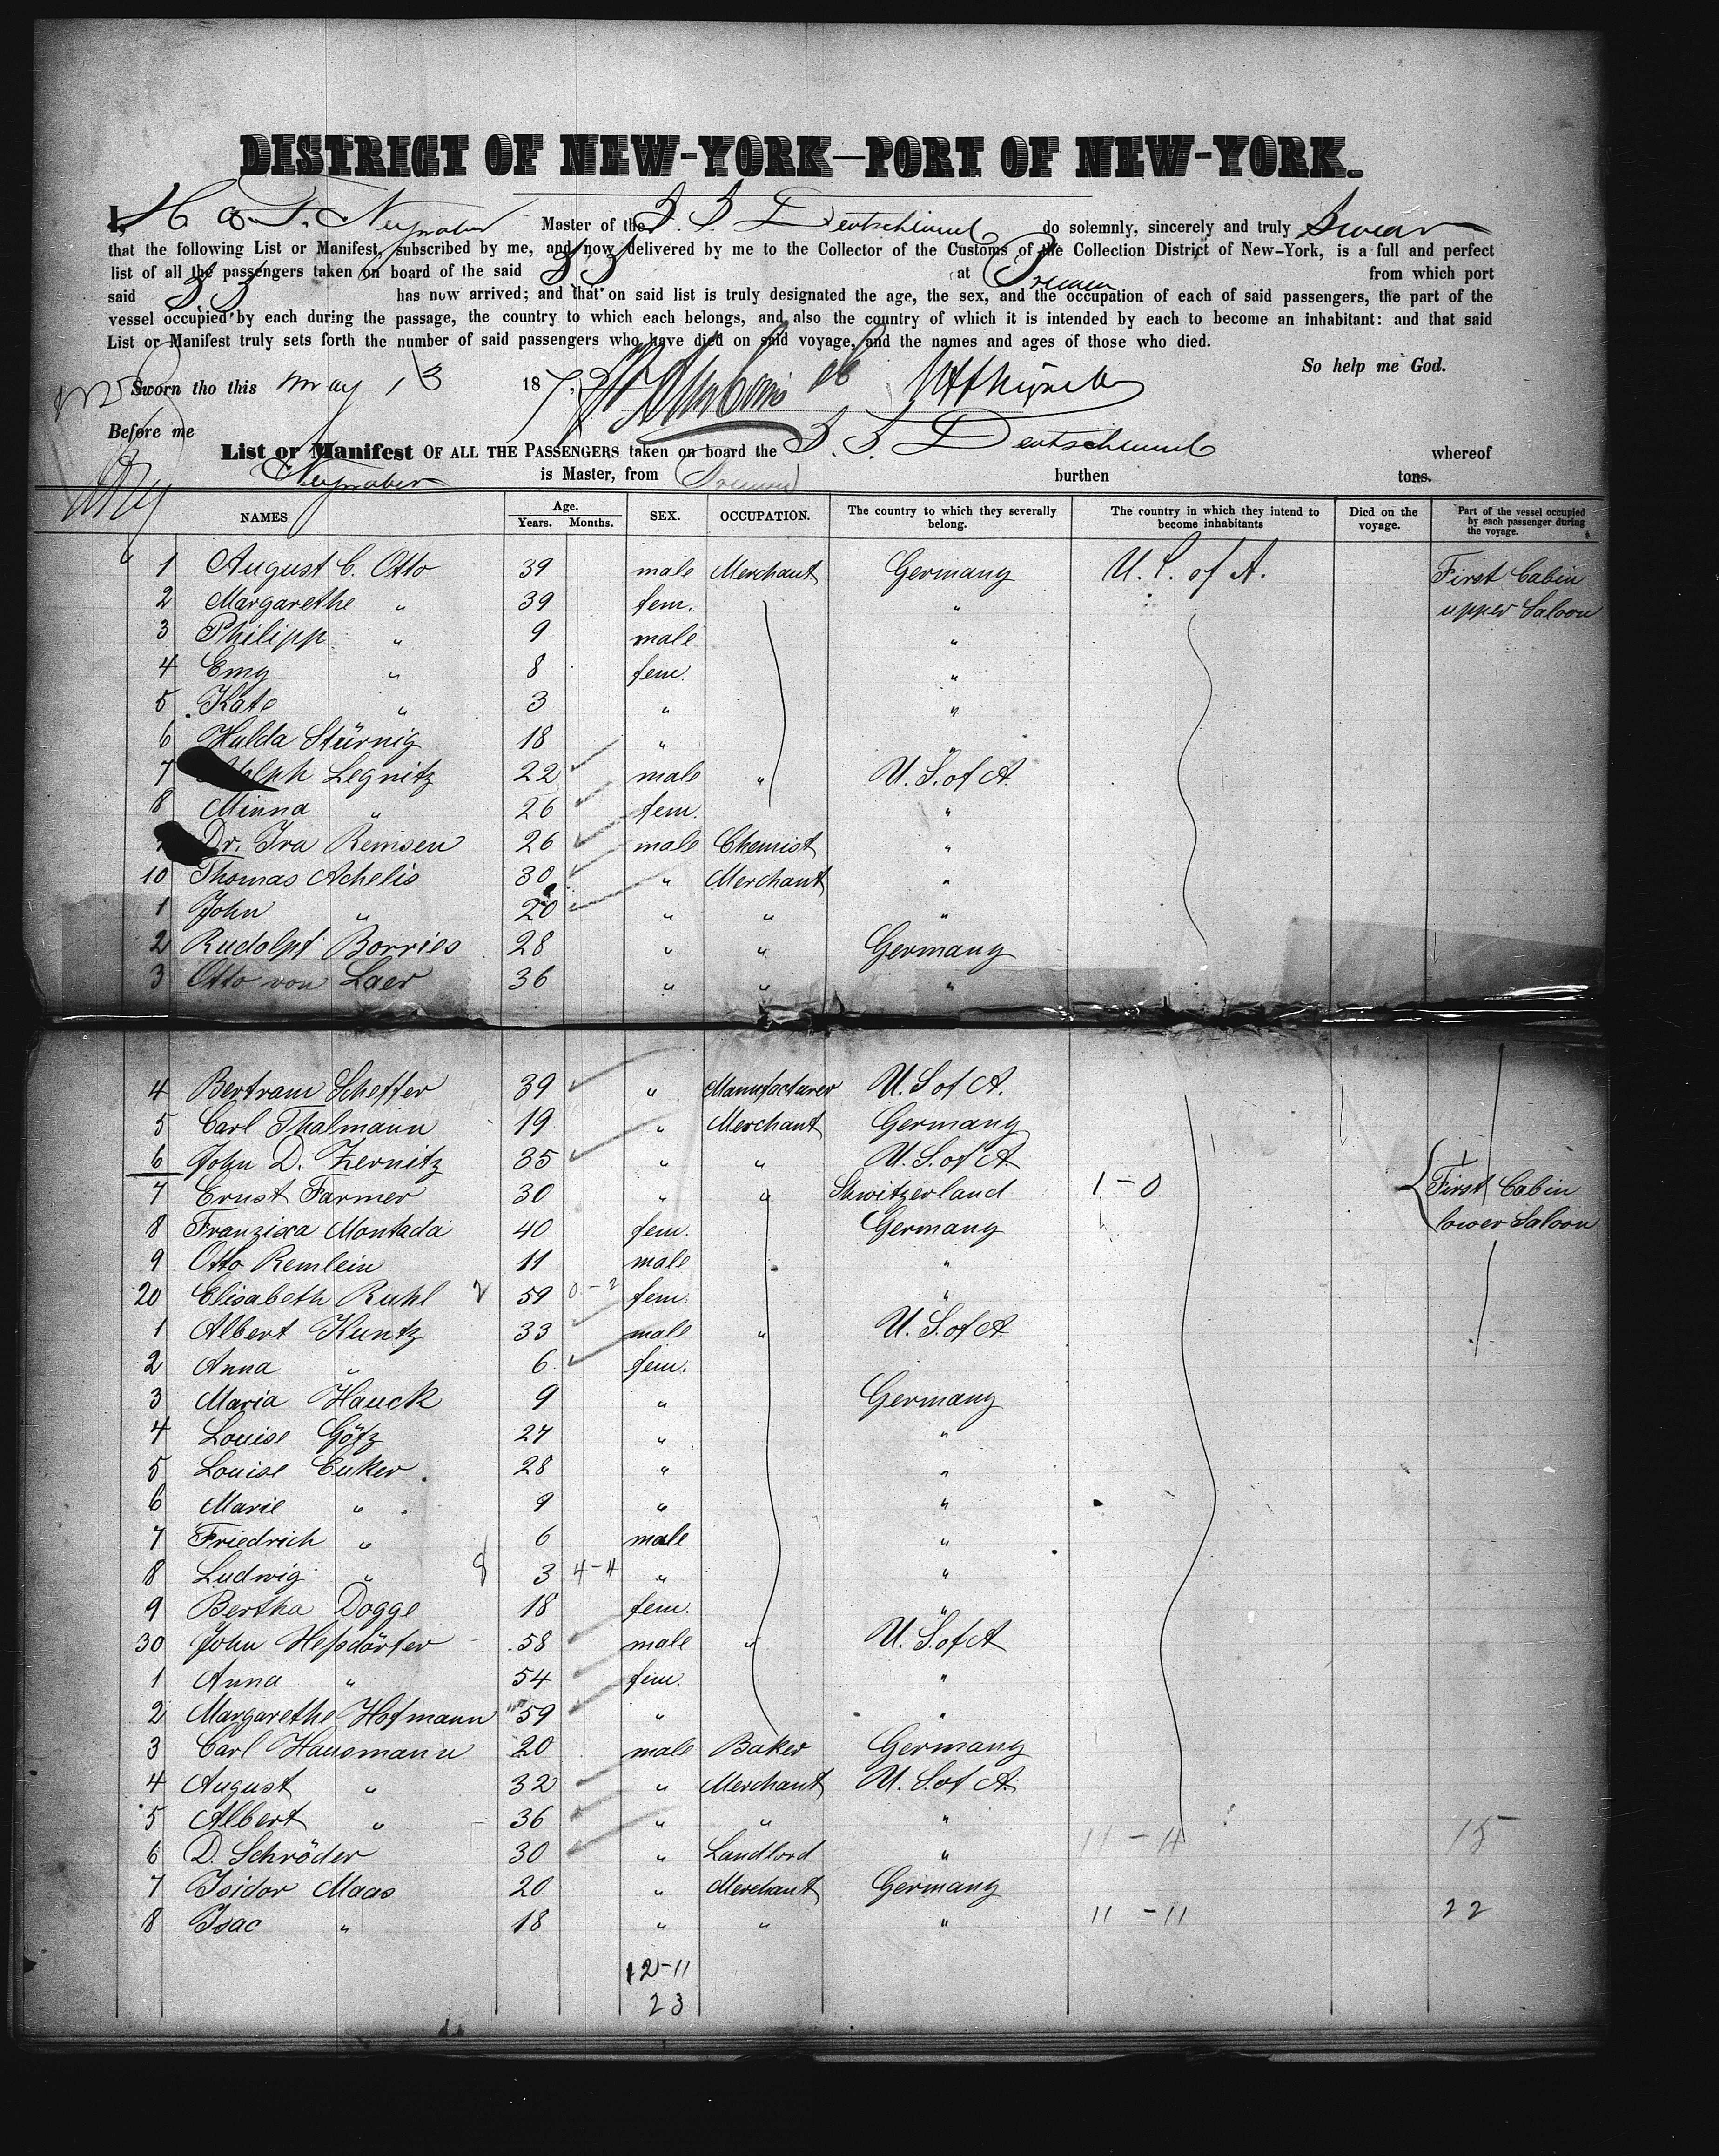 DISTRICT OF NEW-YORK—PORT OF NEW-YORK.
I, H. A. F. Neynaber Master of the S. S. Deutschland do solemnly, sincerely and truly swear
that the following List or Manifest, subscribed by me, and now delivered by me to the Collector of the Customs of the Collection District of New-York, is a full and perfect
list of all the passengers taken on board of the said S S at Bremen from which port
said S S has now arrived; and that on said list is truly designated the age, the sex, and the occupation of each of said passengers, the part of the
vessel occupied by each during the passage, the country to which each belongs, and also the country of which it is intended by each to become an inhabitant: and that said
List or Manifest truly sets forth the number of said passengers who have died on said voyage, and the names and ages of those who died.
So help me God.
Sworn tho this May 13 187
Before me
List or Manifest OF ALL THE PASSENGERS taken on board the S. S. Deutschland whereof
Neynaber is Master, from Bremen burthen tons.
NAMES Age. Years. Months. SEX. OCCUPATION. The country to which they severally belong. The country in which they intend to become inhabitants Died on the voyage. Part of the vessel occupied by each passenger during the voyage.
1 August C. Otto 39 male Merchant Germany U. S. of A. First Cabin
2 Margarethe " 39 fem. " upper Saloon
3 Philipp " 9 male "
4 Emy " 8 fem. "
5 Kate " 3 " "
6 Hulda Stürnig 18 " "
7 Legnitz 22 male " U. S. of A.
8 Minna " 26 fem. "
Dr. Ira Remsen 26 male Chemist "
10 Thomas Achelis 30 " Merchant "
1 John " 20 " " "
2 Rudolpf Borries 28 " " Germany
3 Otto von Laer 36 " " "
4 Bertram Scheffer 39 " Manufacturer U. S. of A.
5 Carl Thalmann 19 " Merchant Germany
6 John D. Zernitz 35 " " U. S. of A.
7 Ernst Farmer 30 " " Shwitzerland 1-0 First Cabin
8 Franzisca Montada 40 fem. Germany lower Saloon
9 Otto Remlein 11 male "
20 Elisabeth Ruhl 59 0-2 fem. "
1 Albert Kuntz 33 male " U. S. of A.
2 Anna " 6 fem.
3 Maria Hauck 9 " Germany
4 Louise Götz 27 " "
5 Louise Euker 28 " "
6 Marie " 9 " "
7 Friedrich " 6 male "
8 Ludwig " 3 4-4 " "
9 Bertha Dogge 18 fem. "
30 John Heßdörfer 58 male " U. S. of A
1 Anna " 54 fem. "
2 Margarethe Hofmann 59 " "
3 Carl Hausmann 20 male Baker Germany
4 August " 32 " Merchant U. S. of A.
5 Albert " 36 " " "
6 D. Schröder 30 " Landlord " 11-4 15
7 Isidor Maas 20 " Merchant Germany
8 Isac " 18 " " " 11-11 22
12-11
23